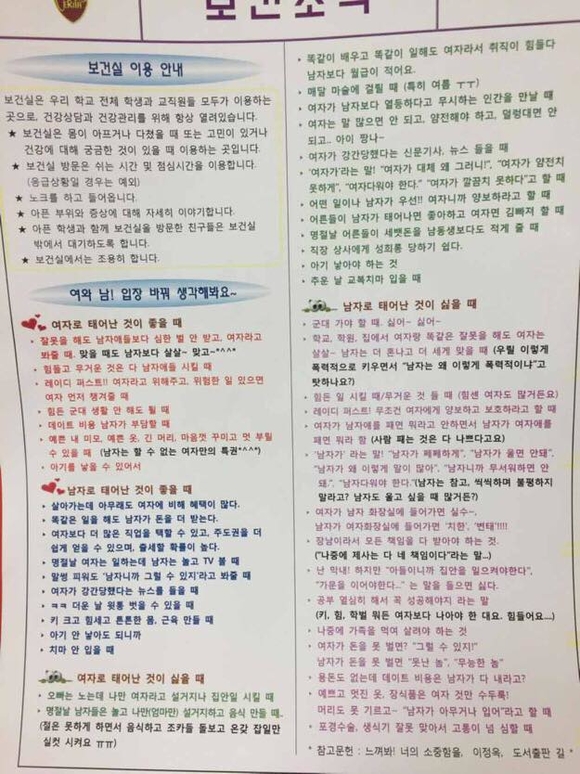 보건소식
보건실 이용 안내
보건실은 우리 학교 전체 학생과 교직원들 모두가 이용하는
곳으로, 건강상담과 건강관리를 위해 항상 열려있습니다.
★ 보건실은 몸이 아프거나 다쳤을 때 또는 고민이 있거나
건강에 대해 궁금한 것이 있을 때 이용하는 곳입니다.
★ 보건실 방문은 쉬는 시간 및 점심시간을 이용합니다.
(응급상황일 경우는 예외)
★ 노크를 하고 들어옵니다.
★ 아픈 부위와 증상에 대해 자세히 이야기합니다.
★ 아픈 학생과 함께 보건실을 방문한 친구들은 보건실
밖에서 대기하도록 합니다.
★ 보건실에서는 조용히 합니다.
여와 남! 입장 바꿔 생각해봐요~
여자로 태어난 것이 좋을 때
잘못을 해도 남자애들보다 심한 벌 안 받고, 여자라고
봐줄 때. 맞을 때도 남자보다 살살~ 맞고~*^^*
힘들고 무거운 것은 다 남자애들 시킬 때
레이디 퍼스트!! 여자라고 위해주고, 위험한 일 있으면
여자 먼저 챙겨줄 때
힘든 군대 생활 안 해도 될 때
데이트 비용 남자가 부담할 때
예쁜 내 미모, 예쁜 옷, 긴 머리, 마음껏 꾸미고 멋 부릴
수 있을 때 (남자는 할 수 없는 여자만의 특권*^^*)
아기를 낳을 수 있어서
남자로 태어난 것이 좋을 때
살아가는데 아무래도 여자에 비해 혜택이 많다.
똑같은 일을 해도 남자가 돈을 더 받는다.
여자보다 더 많은 직업을 택할 수 있고, 주도권을 더
쉽게 얻을 수 있으며, 출세할 확률이 높다.
명절날 여자는 일하는데 남자는 놀고 TV 볼 때
말썽 피워도 '남자니까 그럴 수 있지'라고 봐줄 때
여자가 강간당했다는 뉴스를 들을 때
ㅋㅋ 더운 날 윗통 벗을 수 있을 때
키 크고 힘세고 튼튼한 몸, 근육 만들 때
아기 안 낳아도 되니까
치마 안 입을 때
여자로 태어난 것이 싫을 때
오빠는 노는데 나만 여자라고 설거지나 집안일 시킬 때
명절날 남자들은 놀고 나만(엄마만) 설거지하고 음식 만들 때..
(절은 못하게 하면서 음식하고 조카들 돌보고 온갖 잡일만
실컷 시켜요 ㅠㅠ)
똑같이 배우고 똑같이 일해도 여자라서 취직이 힘들다
남자보다 월급이 적어요.
매달 마술에 걸릴 때 (특히 여름 ㅜㅜ)
여자가 남자보다 열등하다고 무시하는 인간을 만날 때
여자는 말 많으면 안 되고, 얌전해야 하고, 덜렁대면 안
되고.. 아이 짱나~
여자가 강간당했다는 신문기사, 뉴스 들을 때
'여자가'라는 말! "여자가 대체 왜 그러니!", "여자가 얌전치
못하게", "여자다워야 한다." "여자가 깔끔치 못하다"고 할 때
어떤 일이나 남자가 우선!! 여자니까 양보하라고 할 때
어른들이 남자가 태어나면 좋아하고 여자면 김빠져 할 때
명절날 어른들이 세뱃돈을 남동생보다도 적게 줄 때
직장 상사에게 성희롱 당하기 쉽다.
아기 낳아야 하는 것
추운 날 교복치마 입을 때
남자로 태어난 것이 싫을 때
군대 가야 할 때. 싫어~ 싫어~
학교, 학원, 집에서 여자랑 똑같은 잘못을 해도 여자는
살살~ 남자는 더 혼나고 더 세게 맞을 때 (우릴 이렇게
폭력적으로 키우면서 "남자는 왜 이렇게 폭력적이냐"고
탓하나요?)
힘든 일 시킬 때/무거운 거 들 때 (힘센 여자도 많거든요)
레이디 퍼스트! 무조건 여자에게 양보하고 보호하라고 할 때
여자가 남자애를 패면 뭐라고 안하면서 남자가 여자애를
패면 뭐라 함 (사람 패는 것은 다 나쁘다고요)
'남자가' 라는 말! "남자가 쩨쩨하게", "남자가 울면 안돼",
"남자가 왜 이렇게 말이 많아", "남자니까 무서워하면 안
돼.", "남자다워야 한다."(남자는 참고, 씩씩하며 불평하지
말라고? 남자도 울고 싶을 때 많거든?)
여자가 남자 화장실에 들어가면 실수~,
남자가 여자화장실에 들어가면 '치한', '변태'!!!!
장남이라서 모든 책임을 다 받아야 하는 것.
("나중에 제사는 다 네 책임이다"라는 말...)
난 막내! 하지만 "아들이니까 집안을 일으켜야한다",
"가문을 이어야한다..." 는 말을 들으면 싫다.
공부 열심히 해서 꼭 성공해야지 라는 말
(키, 힘, 학벌 뭐든 여자보다 나아야 한 대요. 힘들어요...)
나중에 가족을 먹여 살려야 하는 것
여자가 돈을 못 벌면? "그럴 수 있지!"
남자가 돈을 못 벌면 "못난 놈", "무능한 놈"
용돈도 없는데 데이트 비용은 남자가 다 내라고?
예쁘고 멋진 옷, 장식품은 여자 것만 수두룩!
머리도 못 기르고~ "남자가 아무거나 입어"라고 할 때
포경수술, 생식기 잘못 맞아서 고통이 넘 심할 때
* 참고문헌 : 느껴봐! 너의 소중함을, 이정옥, 도서출판 길 *